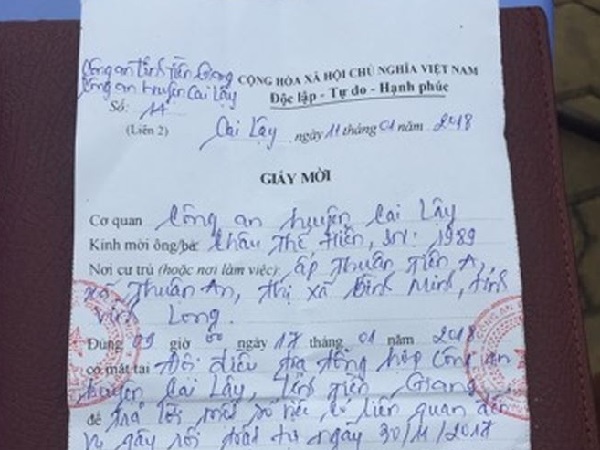 Công an tỉnh Tiền Giang
CỘNG HÒA XÃ HỘI CHỦ NGHĨA VIỆT NAM
Công an huyện Cai Lậy
Độc lập - Tự do - Hạnh phúc
Số: 11
(Liên 2)
Cai Lậy ngày 11 tháng 01 năm 2018
GIẤY MỜI
Cơ quan Công an huyện Cai Lậy
Kính mời ông/bà: Châu Thế Hiển, SN: 1989
Nơi cư trú (hoặc nơi làm việc): ấp Thuận Tiến A,
xã Thuận An, thị xã Bình Minh, tỉnh
Vĩnh Long.
Đúng 09 giờ 00 ngày 17 tháng 01 năm 2018
có mặt tại Đội điều tra tổng hợp Công an
huyện Cai Lậy, tỉnh Tiền Giang
để trả lời một số việc có liên quan đến
vụ gây rối trật tự ngày 30/11/2017